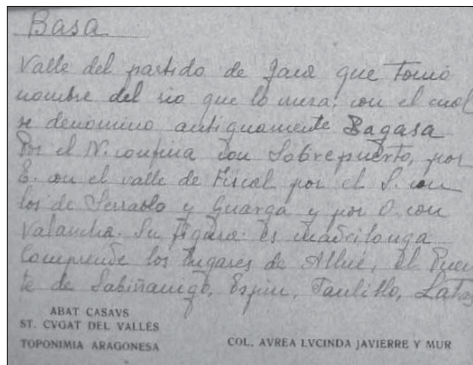 Basa
Valle del partido de Jaca que tomó
nombre del rio que lo riega: con el cual
se denominó antiguamente Bagasa
Por el N. confina con Sobrepuerto, por
E. con el valle de Fiscal por el S. con
los de Serrablo y Guarga y por O. con
Valancha. Su figura es
Comprende los lugares de Allué, El Puen
te de Sabiñanigo, Espin, Latas
ABAT CASAVS
ST. CVGAT DEL VALLÉS
TOPONIMIA ARAGONESA
COL. AVREA LVCINDA JAVIERRE Y MUR